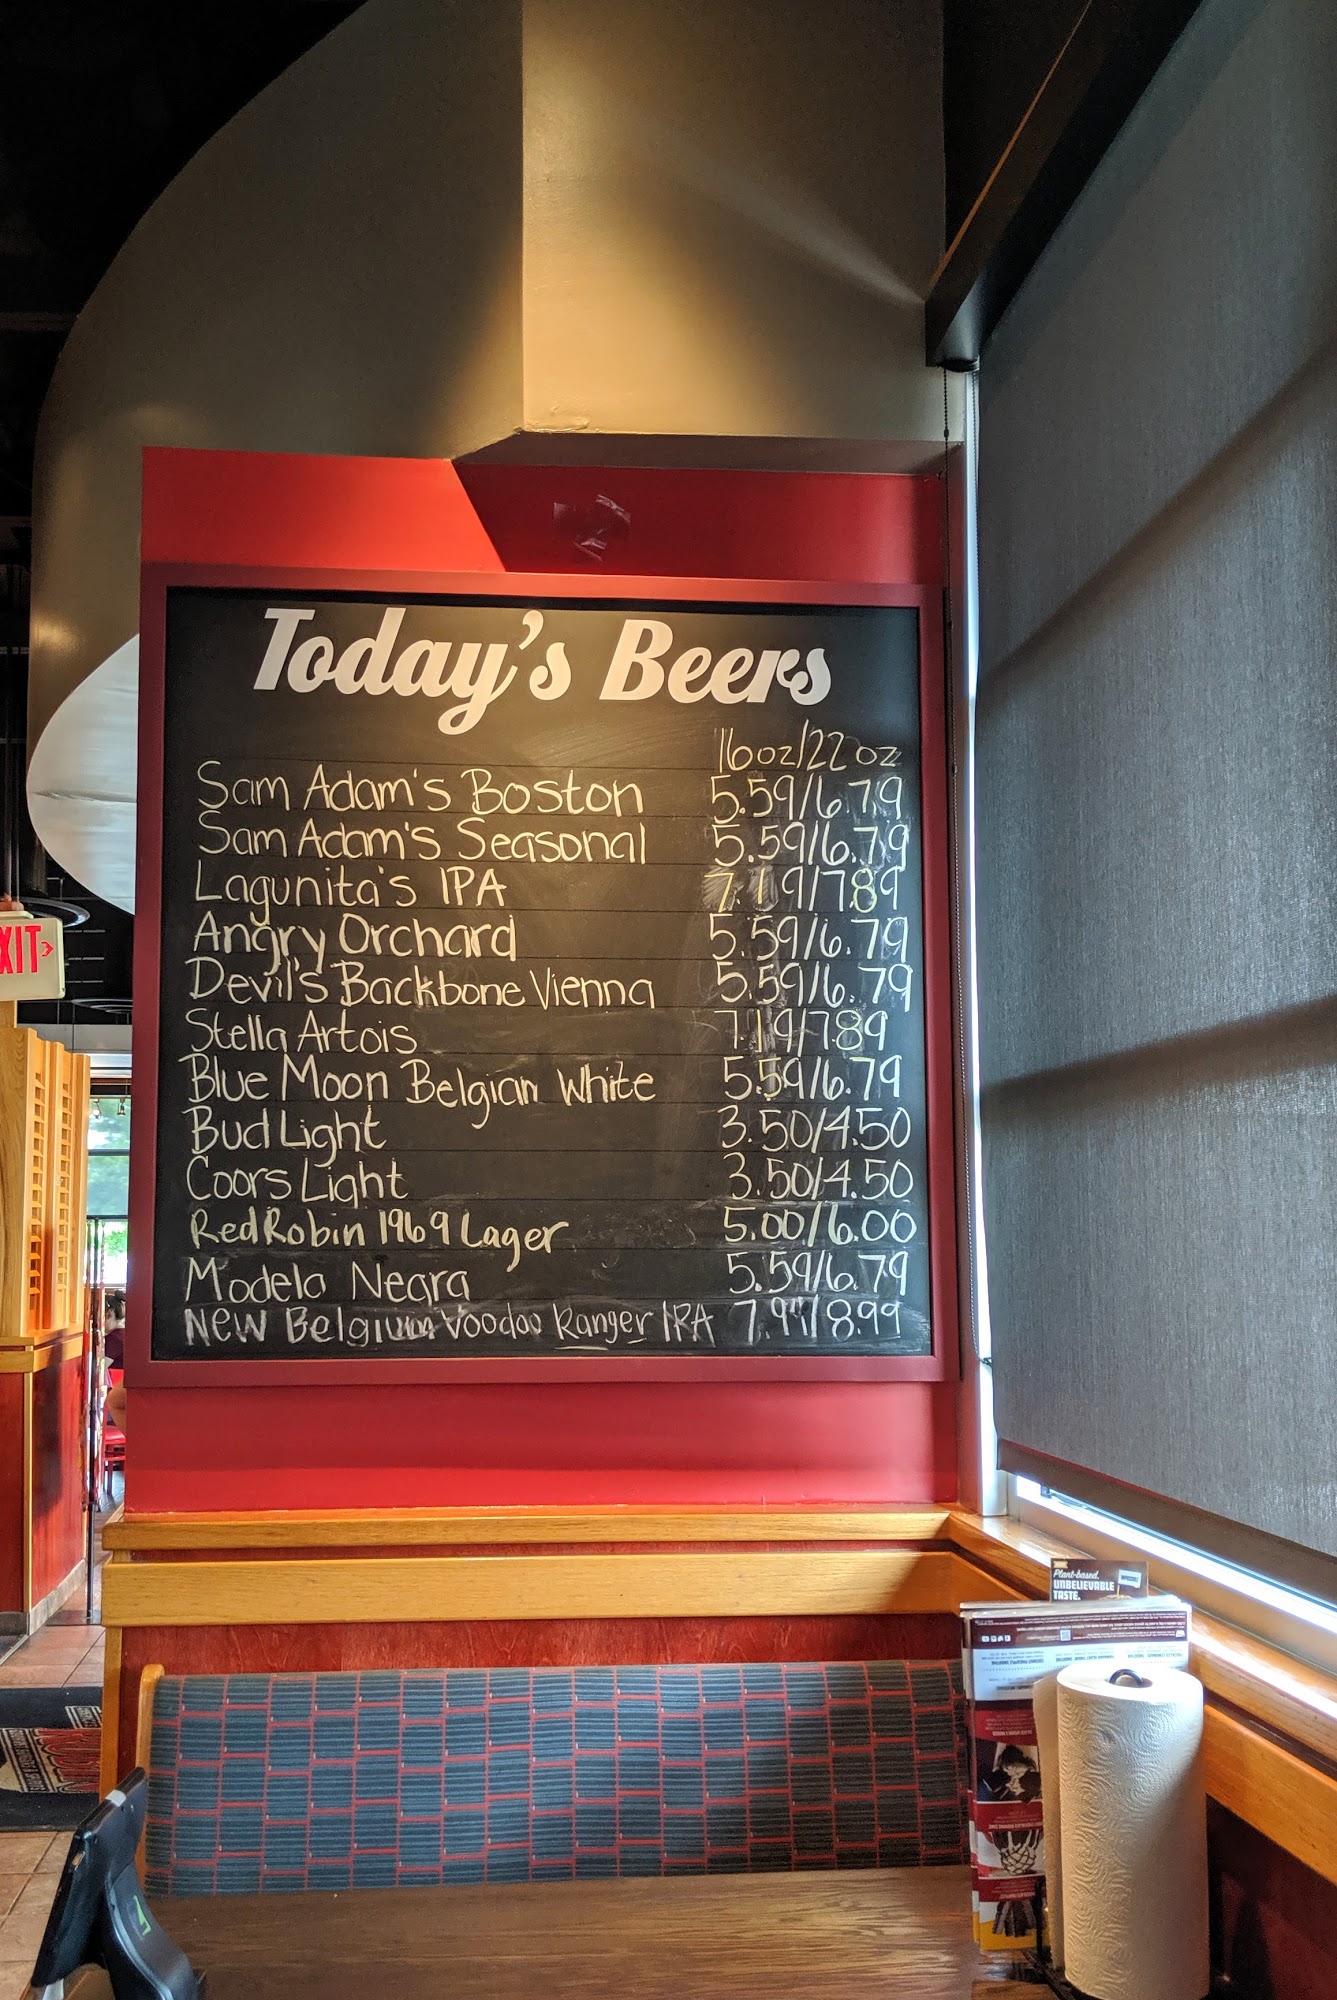 Today's Beers
16oz/22oz
Sam Adam's Boston 5.59/6.79
Sam Adam's Seasonal 5.59/6.79
Lagunita's IPA 7.19/7.89
Angry Orchard 5.59/6.79
Devil's Backbone Vienna 5.59/6.79
Stella Artois 7.19/7.89
Blue Moon Belgian White 5.59/6.79
Bud Light 3.50/4.50
Coors Light 3.50/4.50
Red Robin 1969 Lager 5.00/6.00
Modelo Negra 5.59/6.79
NEW Belgium Voodoo Ranger IPA 7.99/8.99
XIT
Plant-based.
UNBELIEVABLE
TASTE.